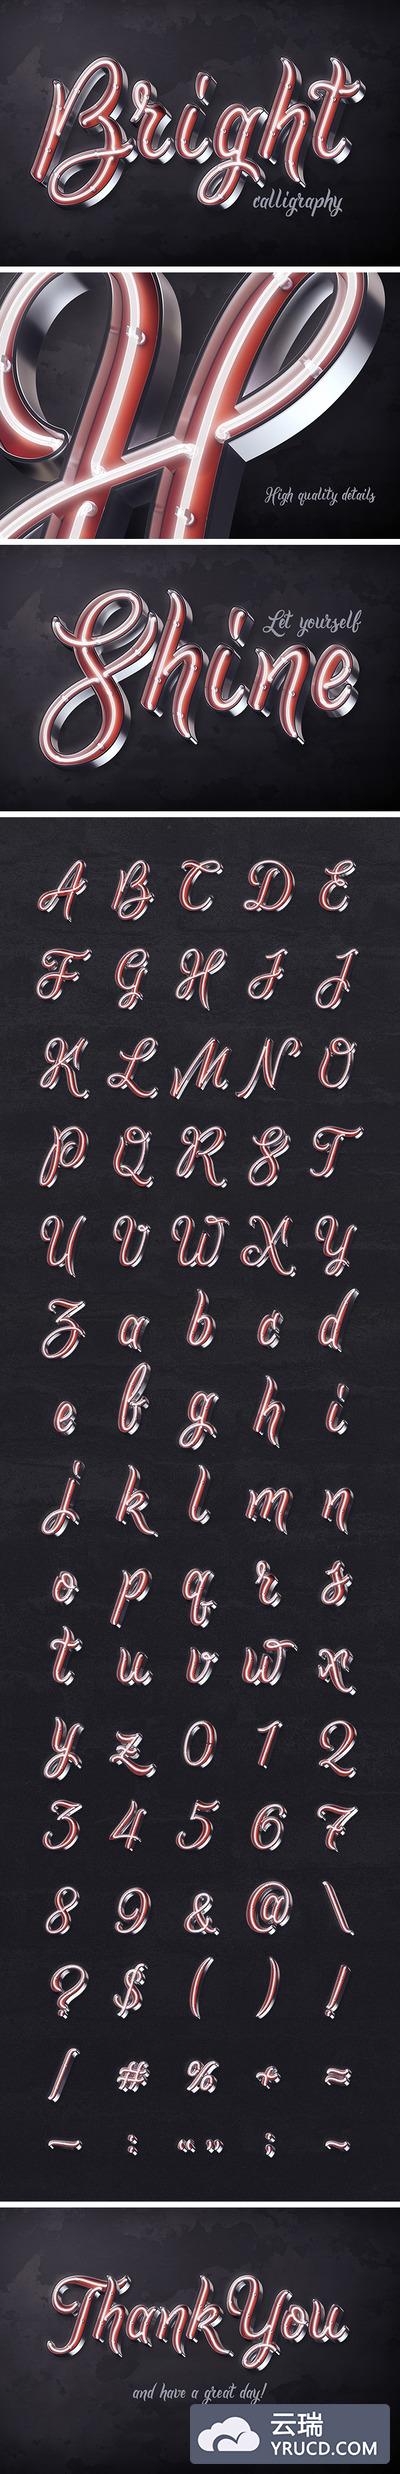 Bright
calligraphy
High quality details
Let yourself
Shine
A B C D E
F G H I J
K L M N O
P Q R S T
U V W X Y
Z a b c d
e f g h i
j k l m n
o p q r s
t u v w x
y z 0 1 2
3 4 5 6 7
8 9 & @ \
? $ ( ) !
/ # % + =
- : “ ” ; ~
Thank You
and have a great day!
云瑞
YRUCD.COM